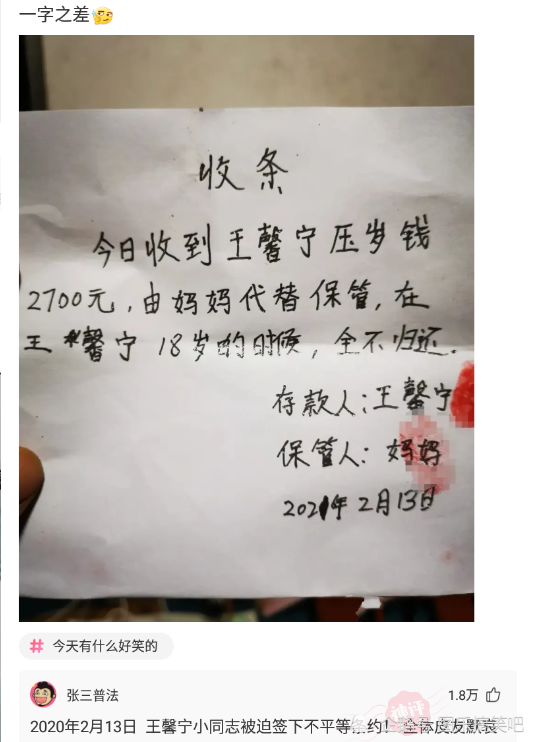 一字之差🤔
收条
今日收到王馨宁压岁钱
2700元,由妈妈代替保管,在
王馨宁18岁的时候,全不归还.
存款人:王馨宁
保管人:妈妈
2021年2月13日
# 今天有什么好笑的
张三普法
1.8万
神评
2020年2月13日 王馨宁小同志被迫签下不平等条约!全体皮友默哀